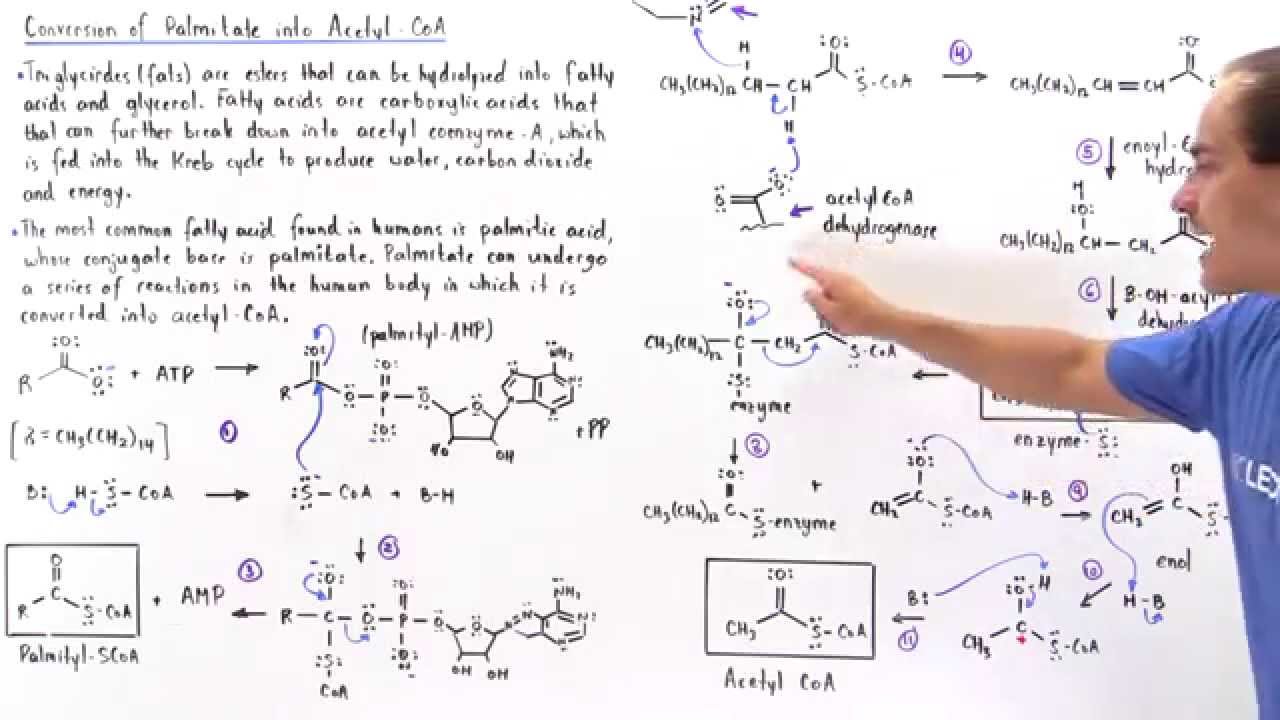 Conversion of Palmitate into Acetyl-CoA
• Triglycirdes (fats) are esters that can be hydrolyzed into fatty
acids and glycerol. Fatty acids are carboxylic acids that
that can further break down into acetyl coenzyme-A, which
is fed into the Kreb cycle to produce water, carbon dioxide
and energy.
• The most common fatty acid found in humans is palmitic acid,
whose conjugate base is palmitate. Palmitate can undergo
a series of reactions in the human body in which it is
converted into acetyl-CoA.
(palmityl-AMP)
R + ATP
[R = CH3(CH2)14]
①
+ PP
B: H-S-CoA
:S-CoA + B-H
②
③
R S-CoA + AMP
Palmityl-SCoA
CoA
CH3(CH2)12 CH-CH S-CoA
④
CH3(CH2)12 CH=CH
acetyl CoA
dehydrogenase
⑤
CH3(CH2)12 CH-CH2
⑥ B-OH-acyl
CH3(CH2)12 C-CH2 S-CoA
enzyme
enzyme-S:
⑧
CH3(CH2)12 C S-enzyme
+
CH2 S-CoA
H-B
⑨
CH2 C OH S
enol
⑩
H-B
B:
CH3 C S-CoA
⑪
CH3 S-CoA
Acetyl CoA